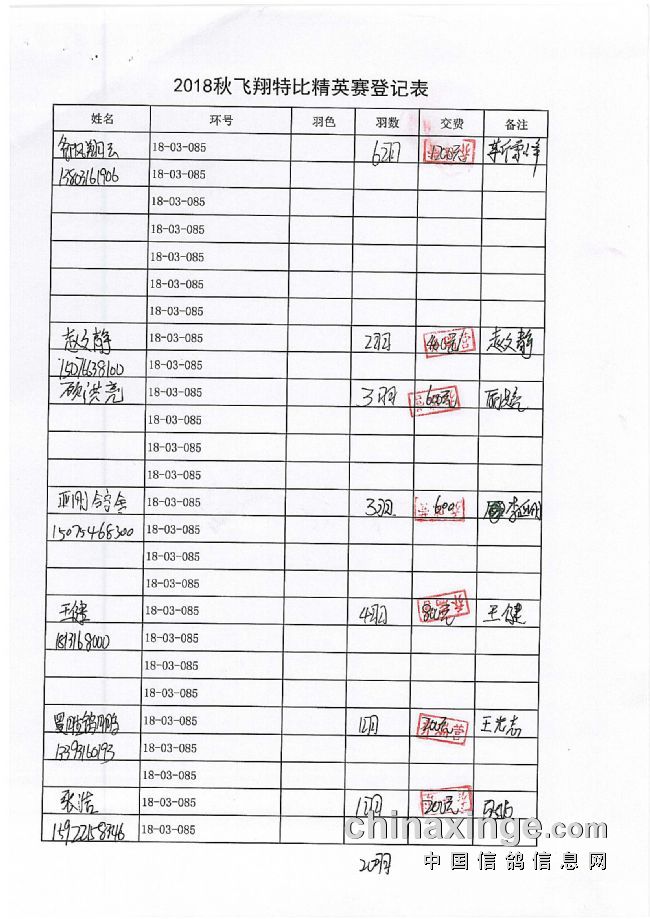 2018秋飞翔特比精英赛登记表
姓名 环号 羽色 羽数 交费 备注
18-03-085 6羽
13803161906 18-03-085
18-03-085
18-03-085
18-03-085
18-03-085
18-03-085
赵文静 18-03-085 2羽 赵文静
18-03-085
顾洪亮 18-03-085 3羽 600元
18-03-085
18-03-085
18-03-085
18-03-085 3羽 600
15075468300 18-03-085
18-03-085
18-03-085
王健 18-03-085 4羽 800元 王健
18-03-085
18-03-085
18-03-085
18-03-085 1羽 王光志
13393160193 18-03-085
18-03-085
张浩 18-03-085 1羽 200元
18-03-085
20羽
chinaxinge.com
中国信鸽信息网